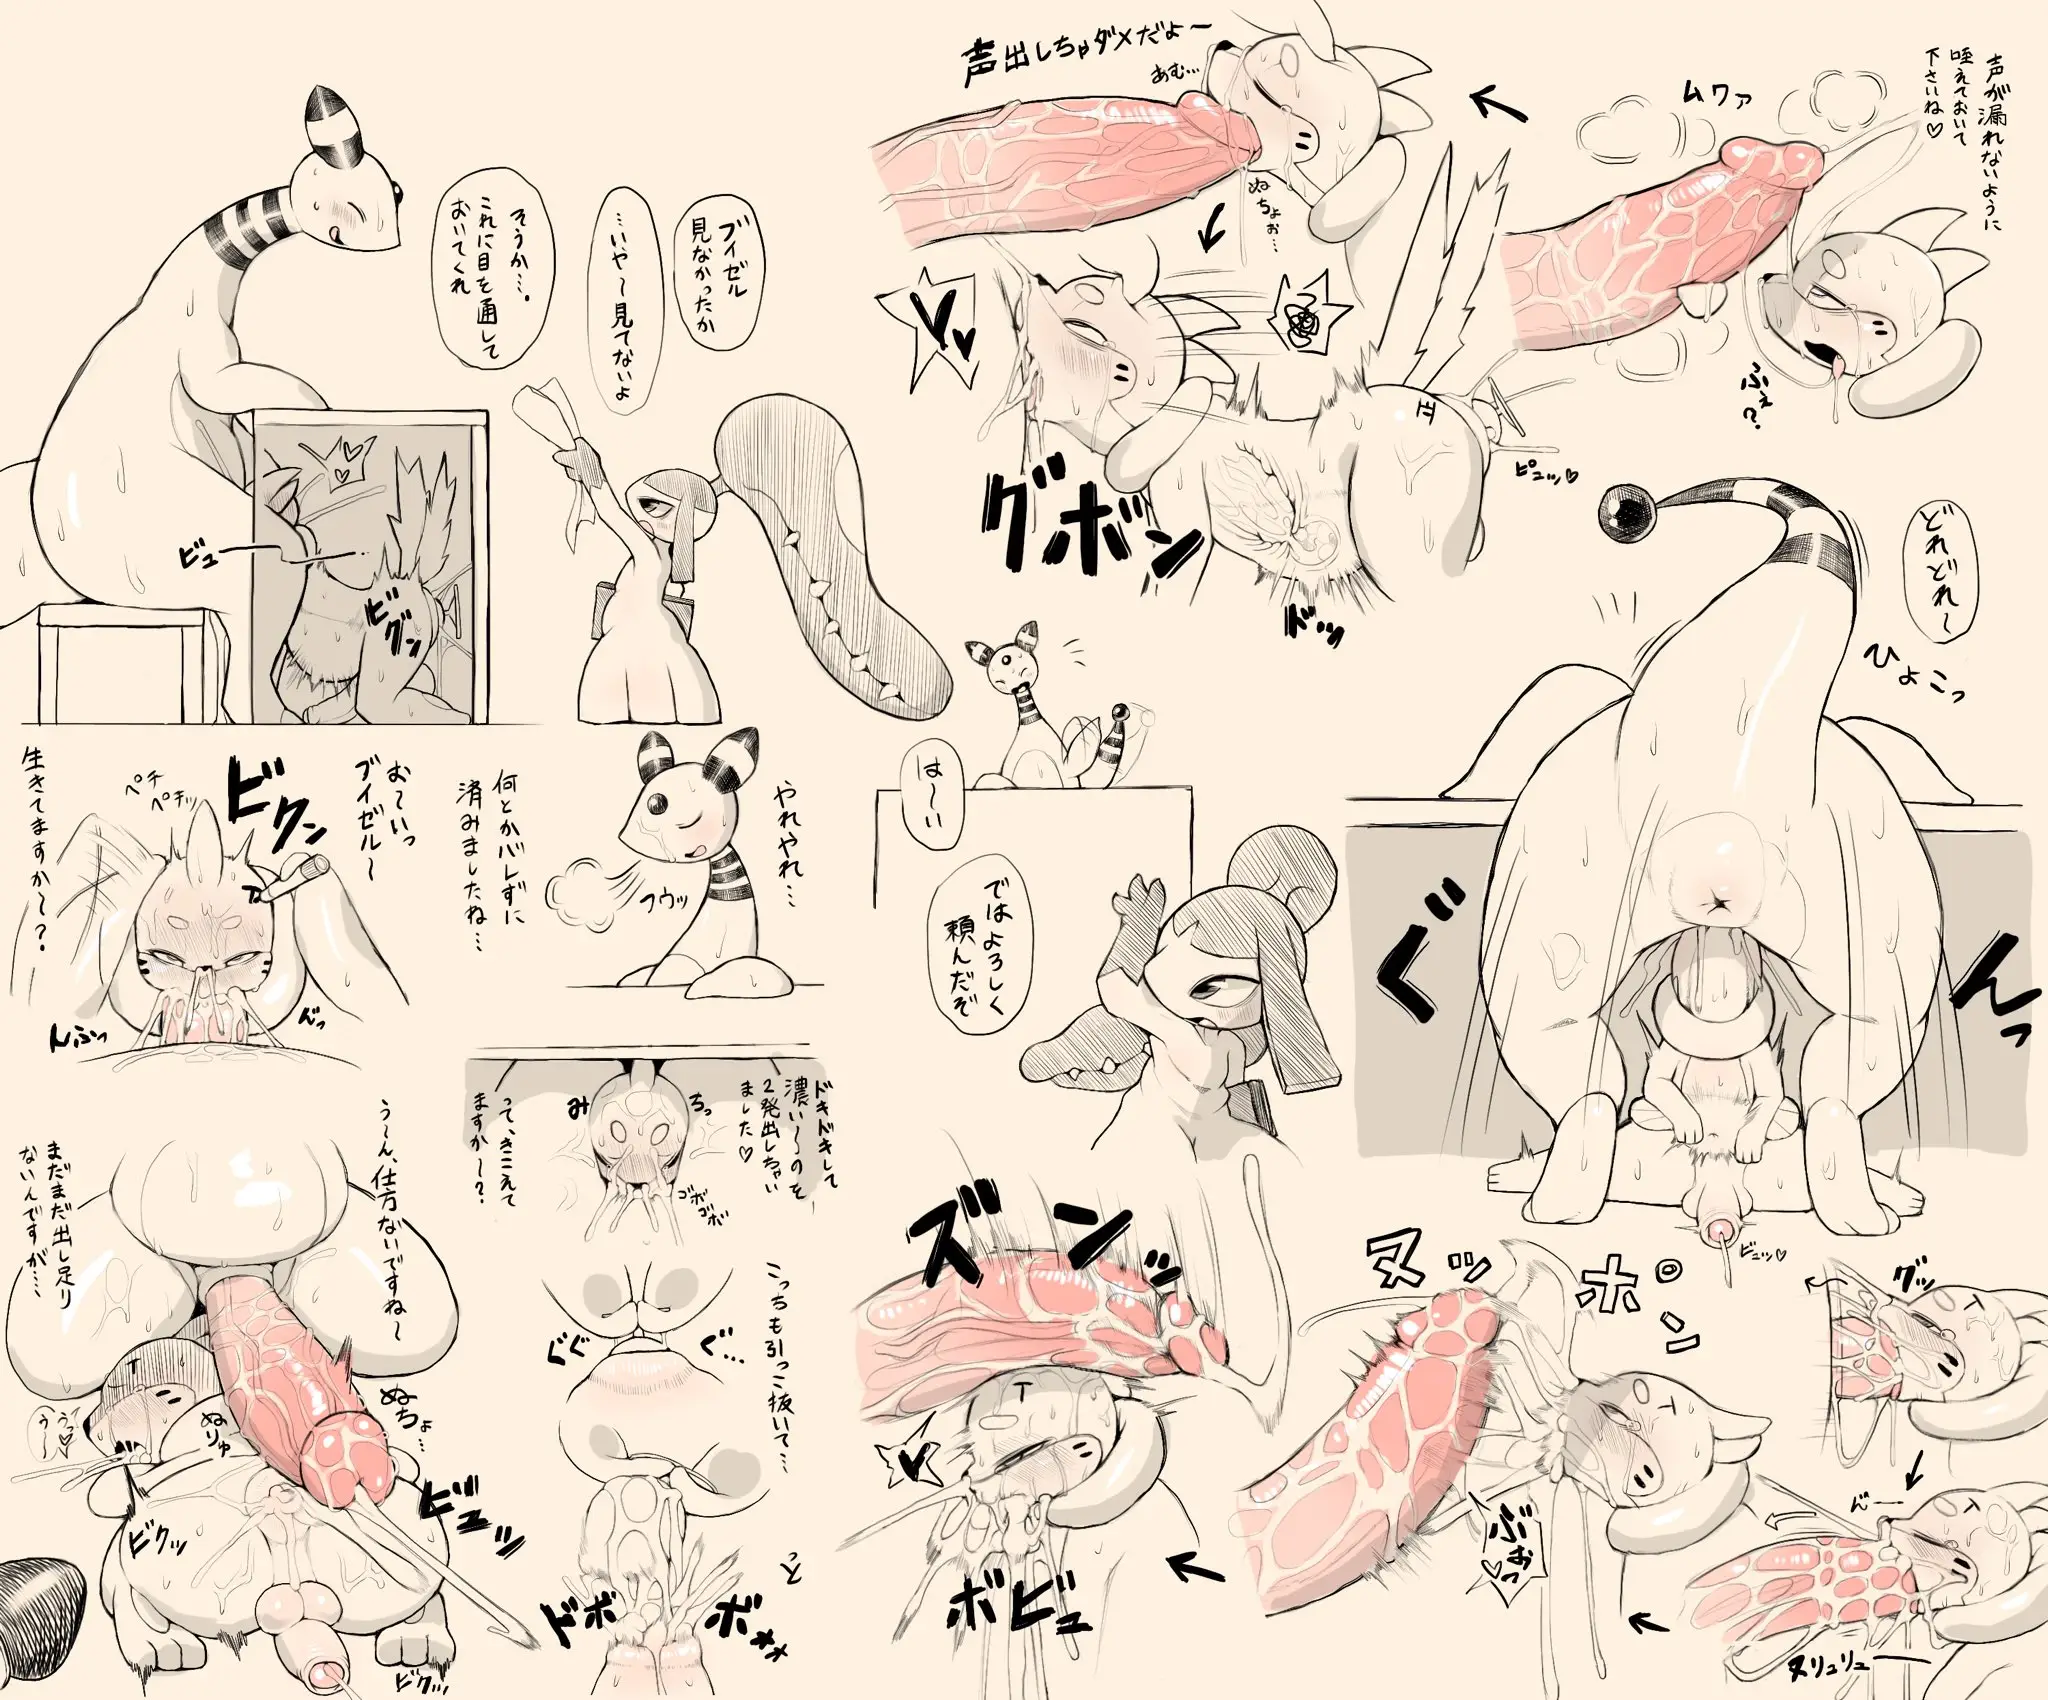 声が漏れないように
咥えておいて
下さいね♡
ムワァ
ふぇ?
声出しちゃダメだよ〜
あむ…
ぬちょぉ…
グボンッ
ピュッ♡
ドッ
ブイゼル
見なかったか
…いや〜見てないよ
そうか…。
これに目を通して
おいてくれ
ビュー
ビグンッ
どれどれ〜
ひょこっ
ぐ
んっ
ビュッ♡
は〜い
ではよろしく
頼んだぞ
やれやれ…
何とかバレずに
済みましたね…
フウッ
お〜いっ
ブイゼル〜
生きてますか〜?
ペチ
ペチッ
ビクン
んふっ
んっ
ドキドキして
濃い〜のを
2発出しちゃい
ました♡
って、きこえて
ますか〜?
み
ちっ
ゴボ
ゴボ
こっちも引っこ抜いて…
ぐぐ
ぐ…
っと
ドボ
ボ
う〜ん、仕方ないですね〜
まだまだ出し足り
ないんですが…
ぬりゅ
ぬちょ…
ビュッ
ビクッ
ビクッ
グッ
ん〜
ヌリュリュ
ヌッポンッ
ぶおっ♡
ズンッ
ボビュ